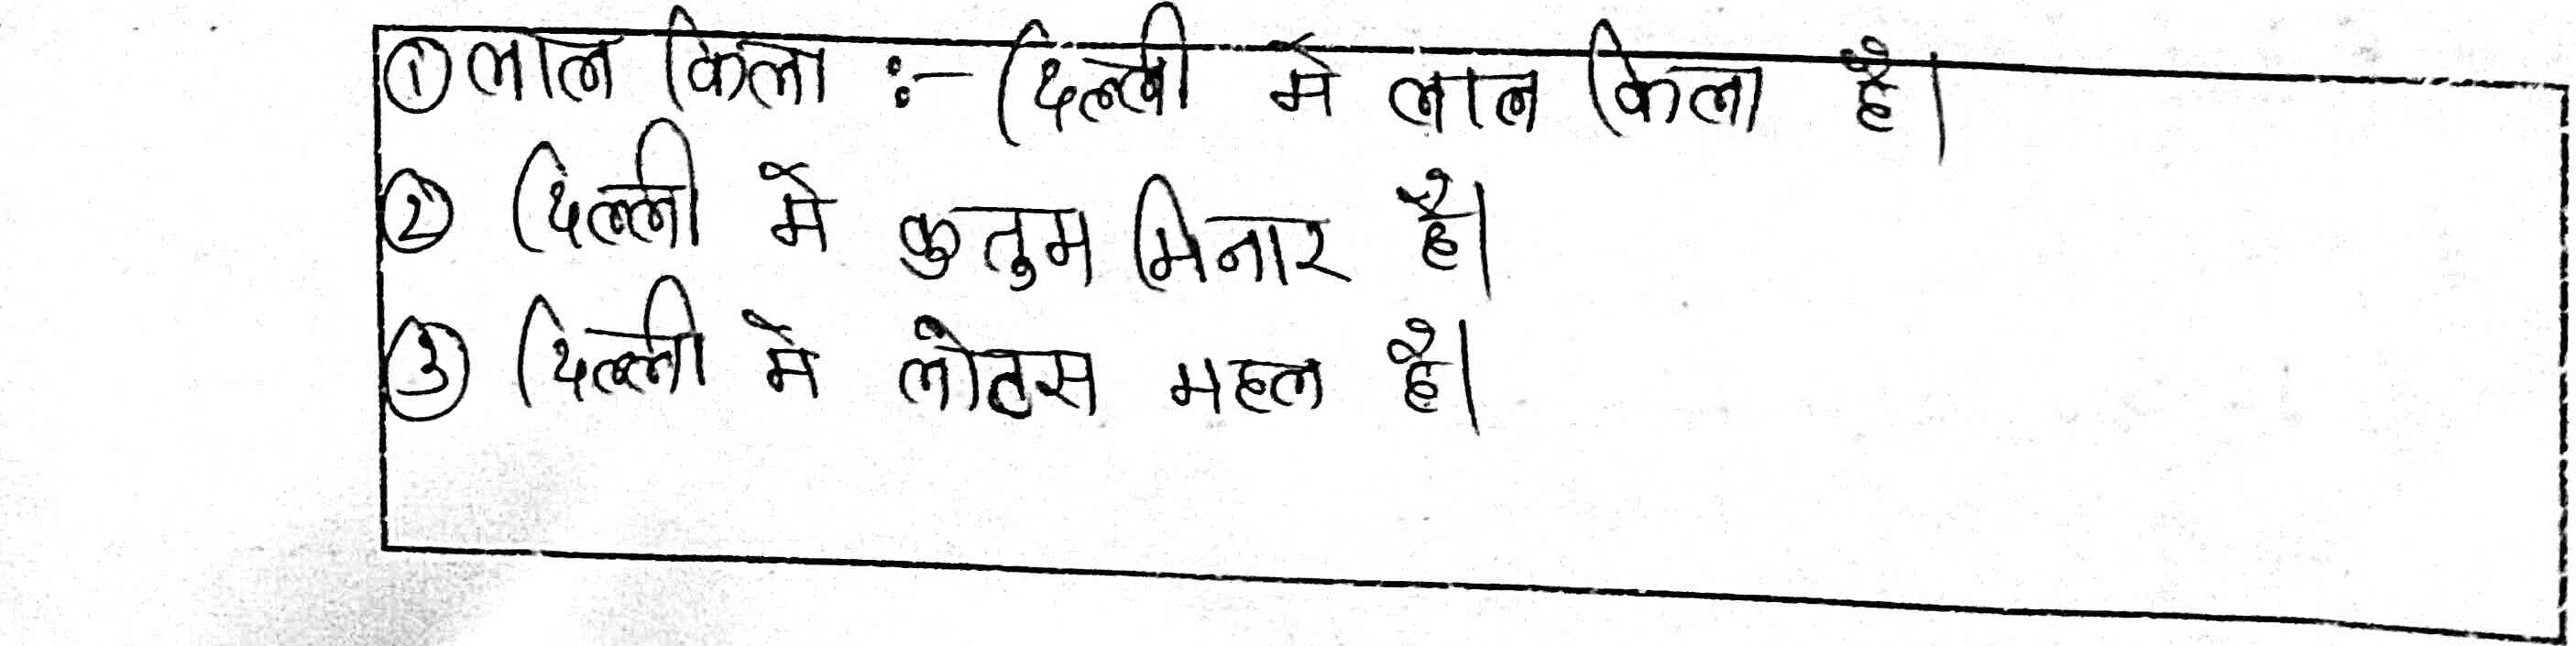 ① लाल किला :- दिल्ली मे लाल किला है।
② दिल्ली मे कुतुम मिनार है।
③ दिल्ली मे लोटस महल है।